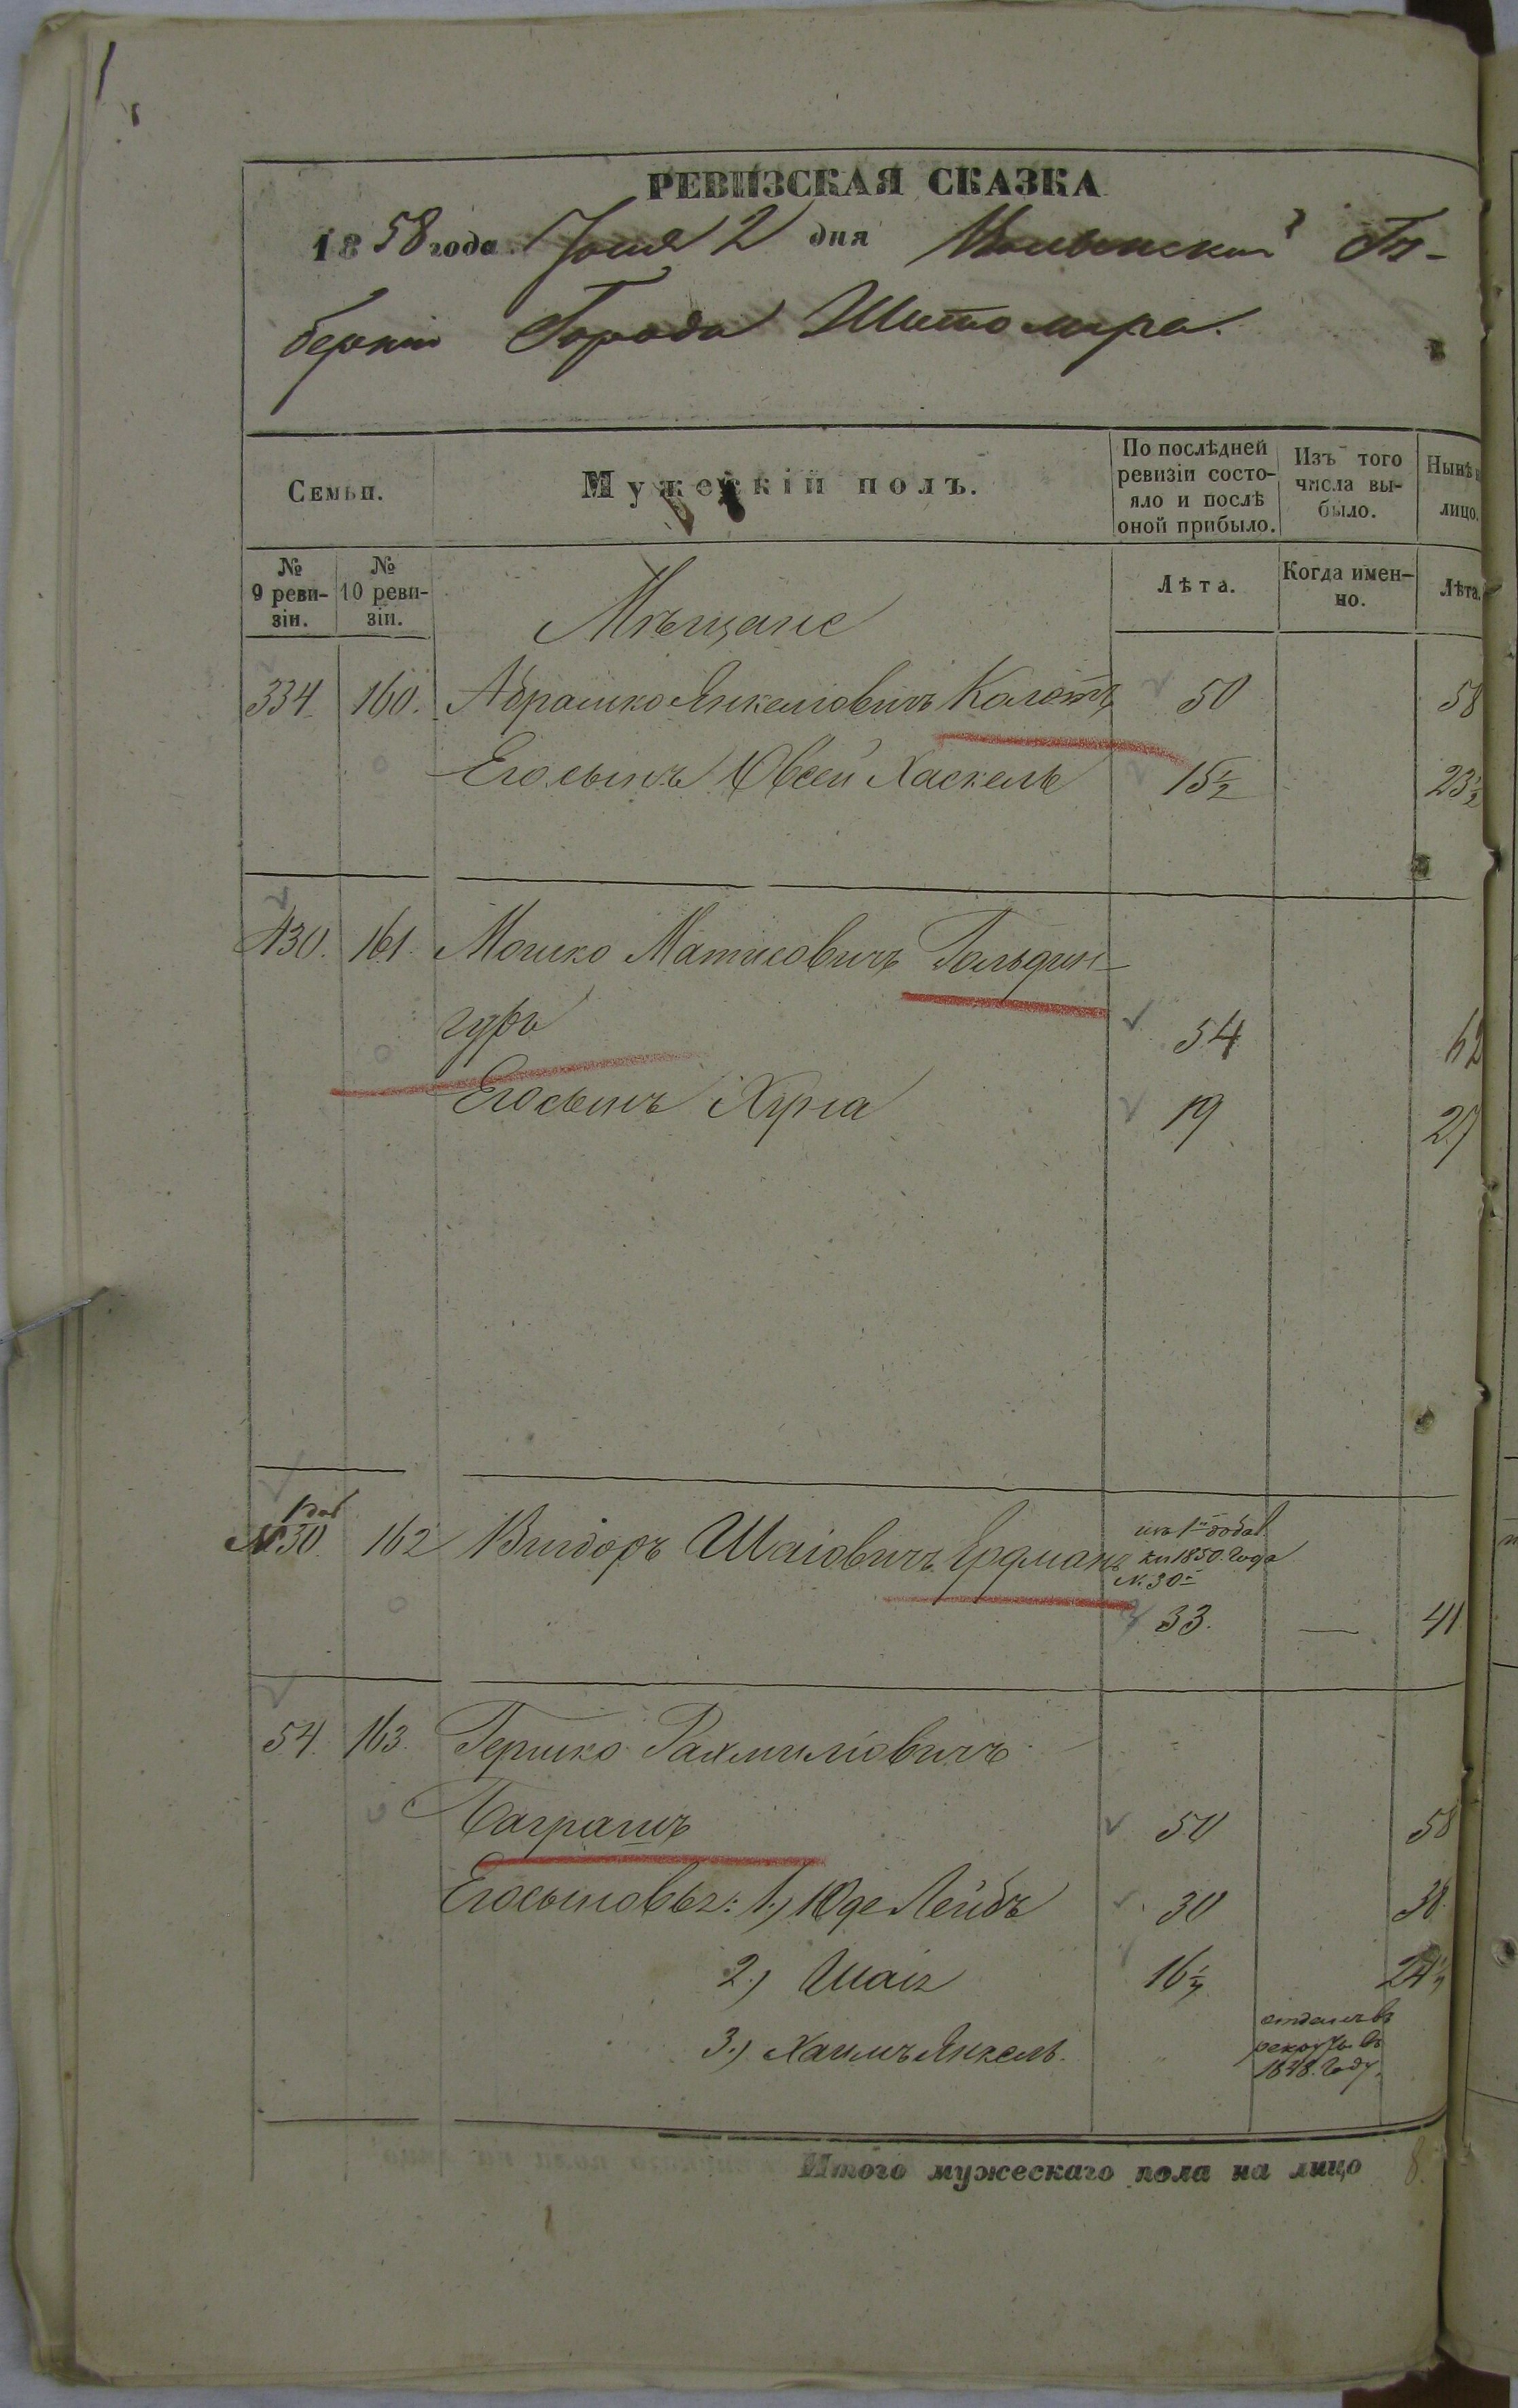 РЕВИЗСКАЯ СКАЗКА
1858 года Іюня 2 дня Волынской Гу-
берніи Города Житомира.
Семьи.
Мужескій полъ.
По послѣдней ревизіи состо-яло и послѣ оной прибыло.
Изъ того числа вы-было.
Нынѣ
лицо.
№ 9 реви-зіи.
№ 10 реви-зіи.
Лѣта.
Когда имен-но.
Лѣта.
Мѣщане
334 160. Абрашко Янкеліовичъ 50 58
Его сынъ Овсей Хаскель 15½ 23½
430. 161. Мошко Матисовичъ Гольдин-
гуръ 54 62
Его сынъ 19 27
№ 30 162 Вигдоръ Шаіовичъ Ердманъ
из 1й добав. к 1850. года № 30й
33. — 41
54. 163. Гершко Рахмиліовичъ
50 58
Его сыновья: 1.) Юде Лейбъ 30 38.
2.) Шаіа 16½ 24½
3.) Хаимъ Янкель. " отданъ въ рекруты въ 1848. году.
Итого мужескаго пола на лицо 8.